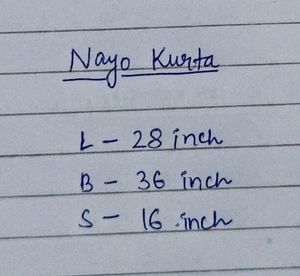 Nayo Kurta
L - 28 inch
B - 36 inch
S - 16 inch